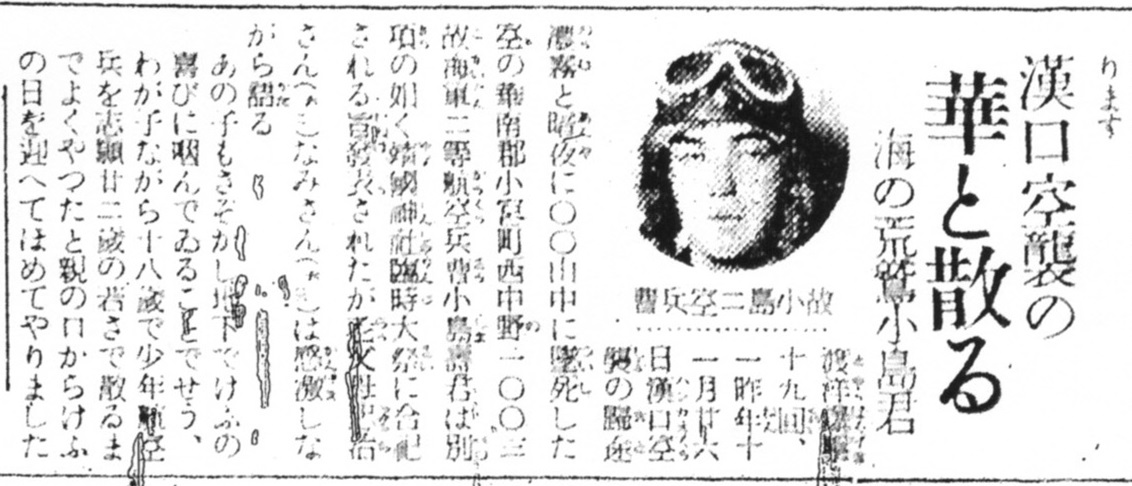 ります
漢口空襲の
華と散る
海の荒鷲小島君
故小島二空兵曹
渡洋爆撃
十九回、
一昨年十
一月廿六
日漢口空
襲の歸途
濃霧と暗夜に〇〇山中に墜死した
空の華南郡小宮町西中野一〇〇三
故海軍二等航空兵曹小島壽君は別
項の如く靖國神社臨時大祭に合祀
される旨發表されたが
さん なみさん は感激しな
がら語る
あの子もさぞかし地下でけふの
喜びに咽んでゐることでせう、
わが子ながら十八歳で少年航空
兵を志願廿二歳の若さで散るま
でよくやつたと親の口からけふ
の日を迎へてほめてやりました